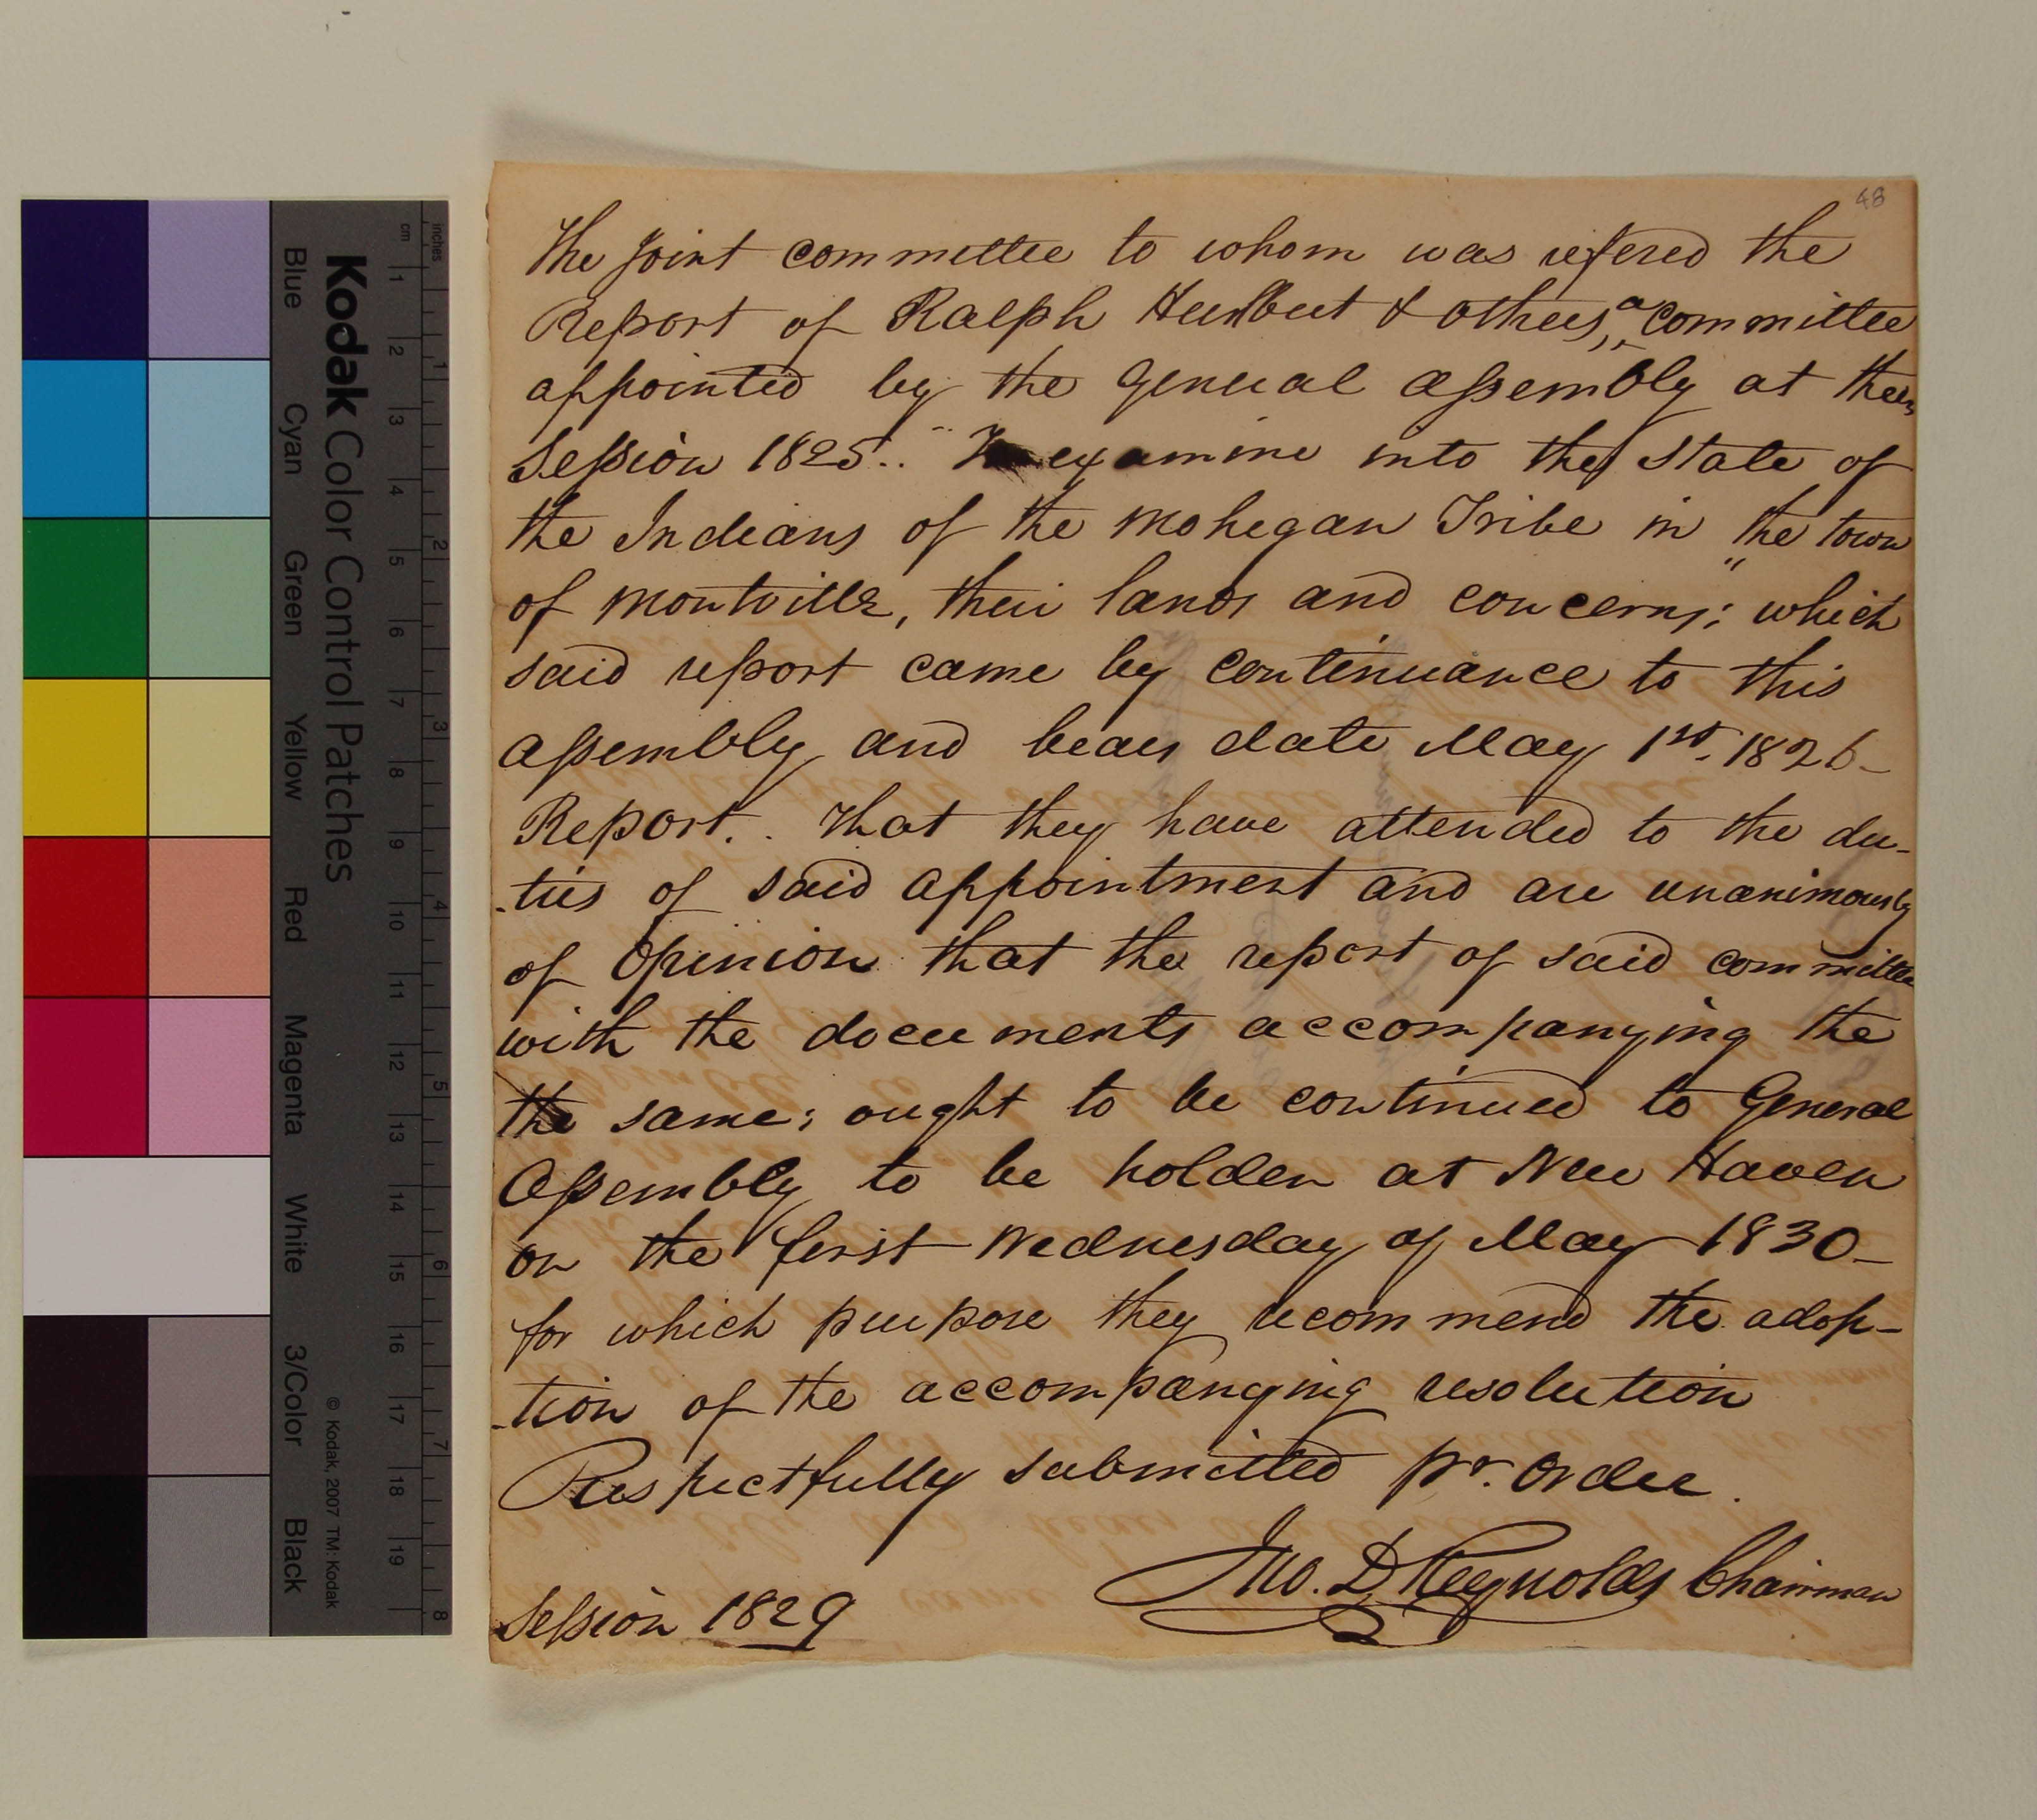 48
The Joint committee to whom was refered the
Report of Ralph Hurlbut & others, a committee
appointed by the General Assembly at their
Session 1825.. "To examine into the State of
the Indians of the Mohegan Tribe in the town
of Montville, their lands and concerns;" which
said report came by continuance to this
Assembly and bears date May 1st. 1826_
Report.. That they have attended to the du-
-ties of said appointment and are unanimously
of Opinion that the report of said committee
with the documents accompanying the
the same; ought to be continued to General
Assembly to be holden at New Haven
on the first Wednesday of May 1830_
for which purpose they recommend the adop-
-tion of the accompanying resolution
Respectfully submitted pr. Order.
Jno. D Reynolds Chairman
Session 1829
Kodak Color Control Patches
© Kodak, 2007 TM: Kodak
Blue Cyan Green Yellow Red Magenta White 3/Color Black
inches 1 2 3 4 5 6 7 8
cm 1 2 3 4 5 6 7 8 9 10 11 12 13 14 15 16 17 18 19